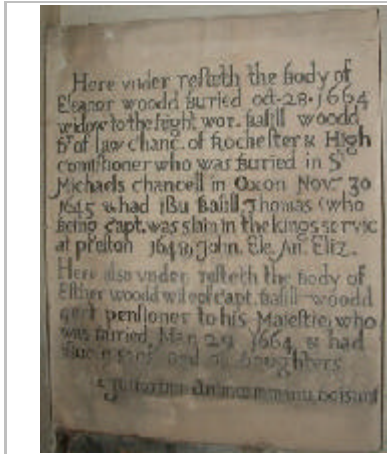 Here vnder resteth the body of
Eleanor woodd buried oct·28·1664
widow to the right wor. basill woodd
dr of law chanc. of Rochester & High
comissioner who was buried in St
Michaels chancell in Oxon Nov. 30
1645 & had issu basill Thomas (who
being capt. was slain in the kings servic
at preston 1648, John. Ele. An. Eliz.
Here also vnder resteth the body of
Esther woodd wife of capt. basill woodd
gent pensioner to his Maiestie, who
was buried, Mar. 29 1664, & had
sons and daughters